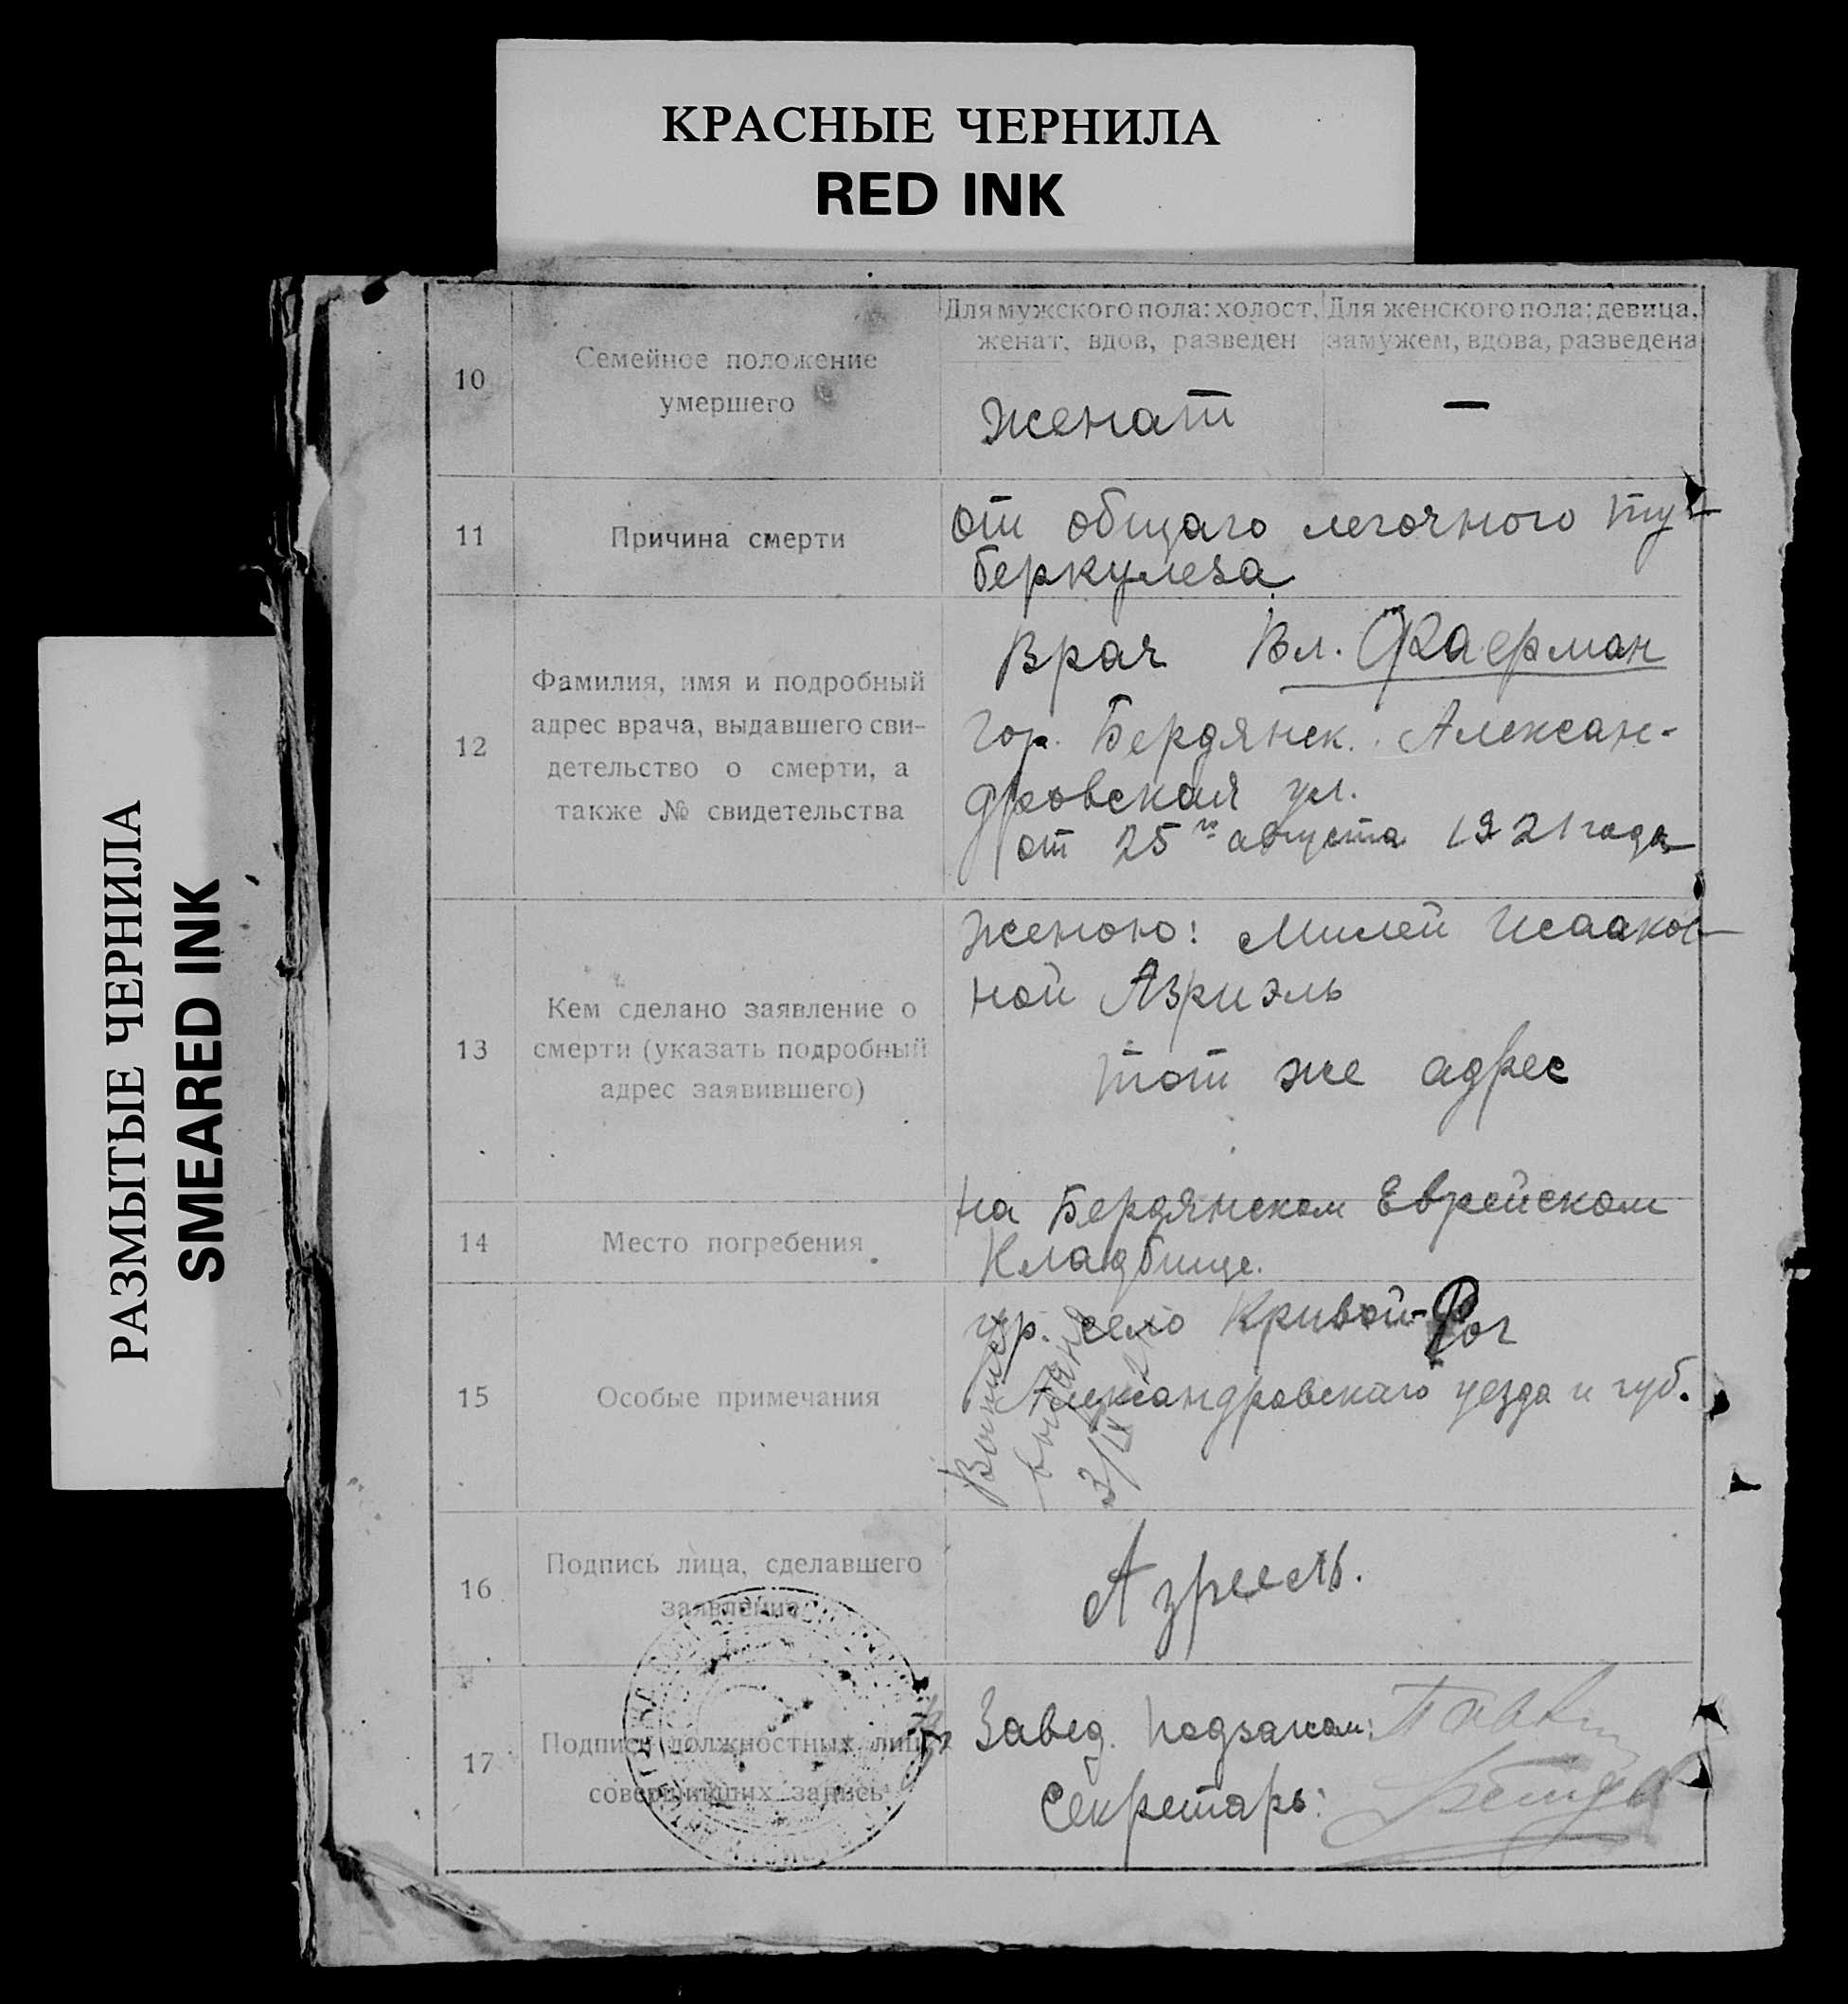 КРАСНЫЕ ЧЕРНИЛА
RED INK
РАЗМЫТЫЕ ЧЕРНИЛА
SMEARED INK
10
Семейное положение
умершего
Для мужского пола: холост,
женат, вдов, разведен
Для женского пола: девица,
замужем, вдова, разведена
женат
—
11
Причина смерти
от общаго легочного ту-
беркулеза
12
Фамилия, имя и подробный
адрес врача, выдавшего сви-
детельство о смерти, а
также № свидетельства
Врач Вл. Файерман
гор. Бердянск. Алексан-
дровская ул.
от 25го августа 1921 года
13
Кем сделано заявление о
смерти (указать подробный
адрес заявившего)
женою: Милей Исааков-
ной Азриэль
тот же адрес
14
Место погребения
на Бердянском Еврейском
Кладбище.
15
Особые примечания
гр. село Кривой-Рог
Александровскаго уезда и губ.
Выпись
выдана
3/IX 21
16
Подпись лица, сделавшего
заявление
Азриель.
17
Подписи должностных лиц,
совершивших запись
Завед. Подзагсом:
Секретарь: